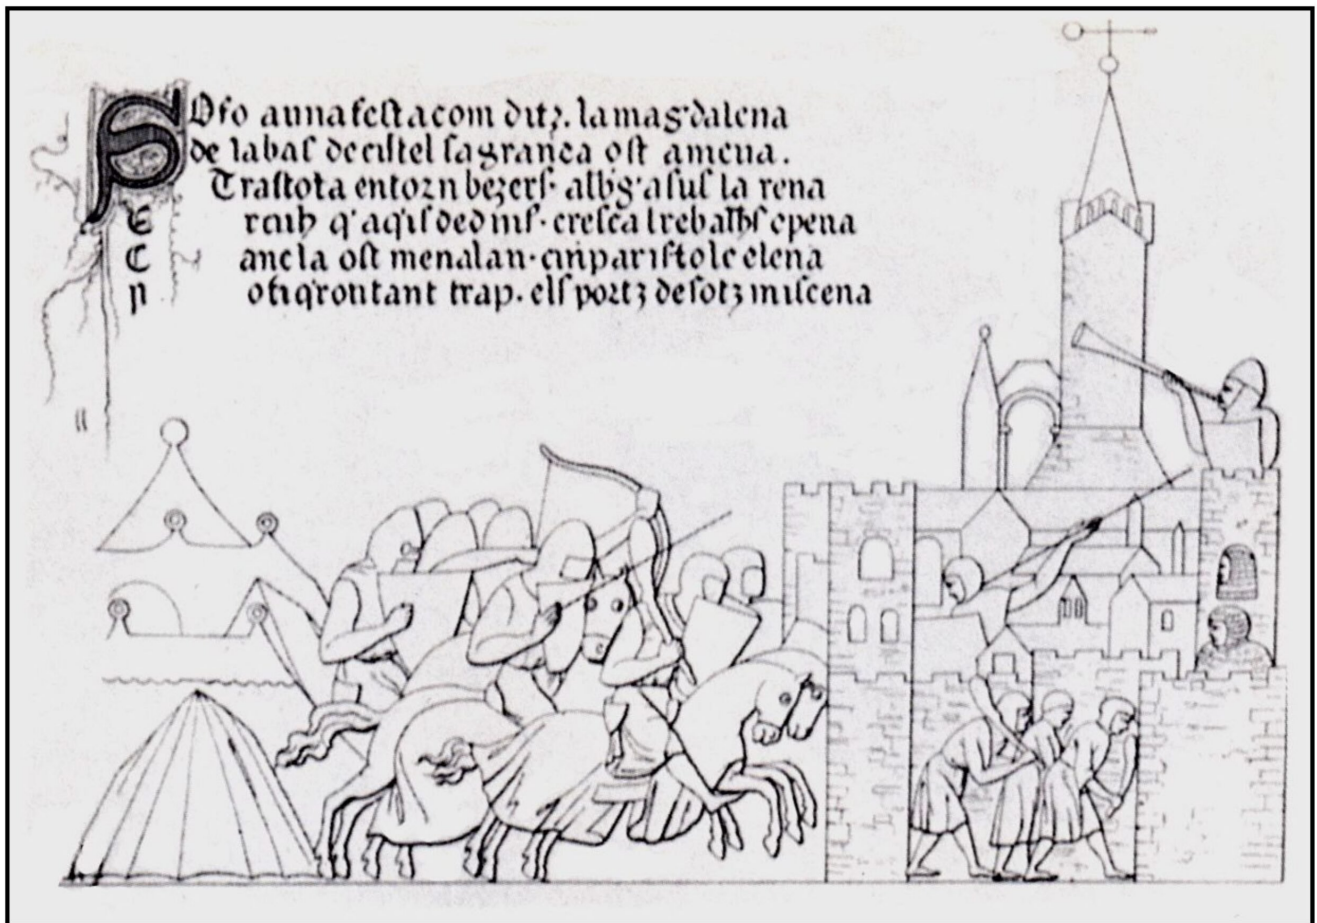 SOfo aunafestacom ditz. lamag'dalena
de labas decistel sagranca ost amena.
Trastota entorn bezers· albg'asus la rena
E rcuh q'aq'is dedins· cresca trebalhs epena
C anc la ost menalau· cuiparistolc elena
N ofiq'ron tant trap· els portz desotz miscena